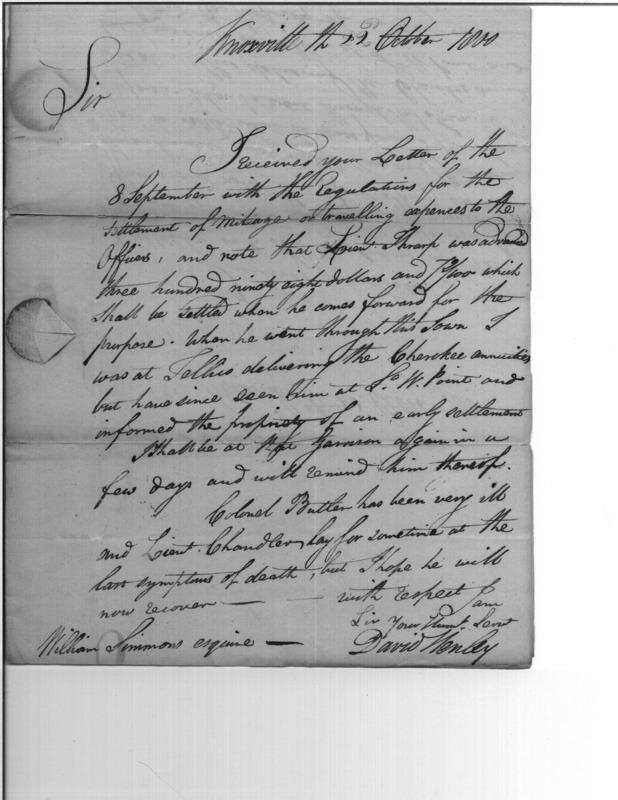 Knoxville th 22 October 1800
Sir
I received your Letter of the
8 September with the Regulations for the
settlement of mileage or travelling expences to the
Officers, and note that Lieut. Tharp was advanced
three hundred ninety eight dollars and which
shall be settled when he comes forward for the
purpose. When he went through this Town I
was at Tellico delivering the Cherokee annuities
but have since seen him at S. W. Point and
informed the propriety of an early settlement
I shall be at that Garrison again in a
few days and will remind him thereof.
Colonel Butler has been very ill
and Lieut. Chandler, lay for sometime at the
last symptoms of death, but I hope he will
now recover — — with respect I am
Sir Your Humb. Servt
William Simmons esquire — David Henley